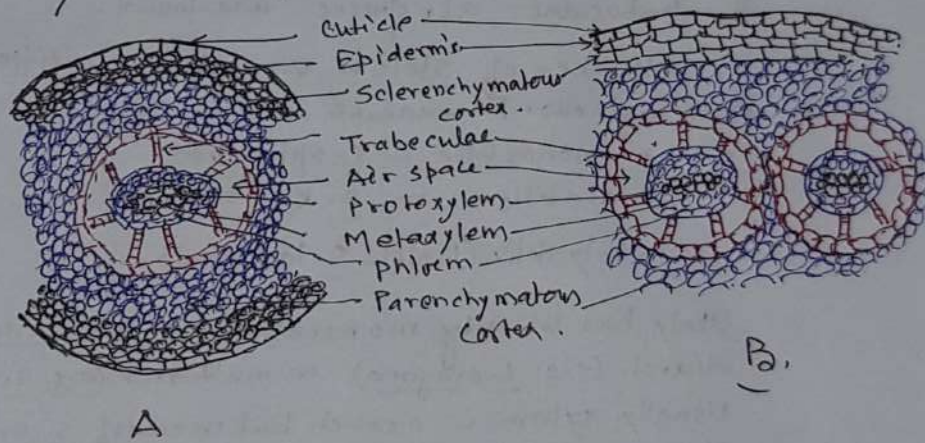 Cuticle
Epidermis
Sclerenchymatous
cortex.
Trabeculae
Air space
Protoxylem
Metaxylem
Phloem
Parenchymatous
Cortex.
A
B.